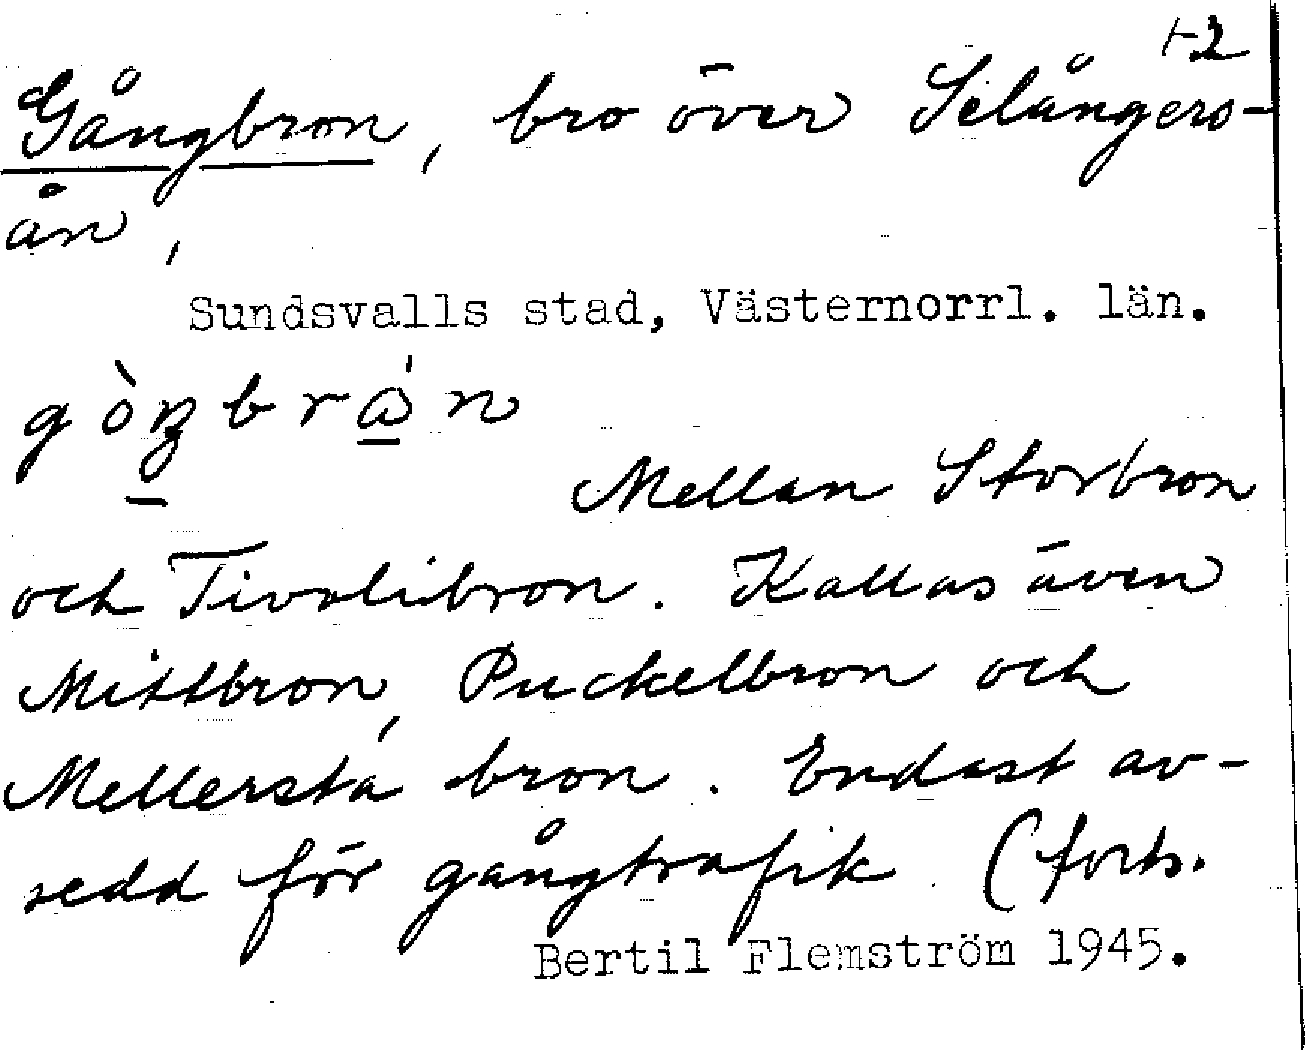 1-2
Gångbron, bro över Selångers-
ån,
Sundsvalls stad, Västernorrl. län.
gòŋbrán
Mellan Storbron
och Tivolibron. Kallas även
Mittbron, Puckelbron och
Mellersta bron. Endast av-
sedd för gångtrafik (forts.
Bertil Flemström 1945.